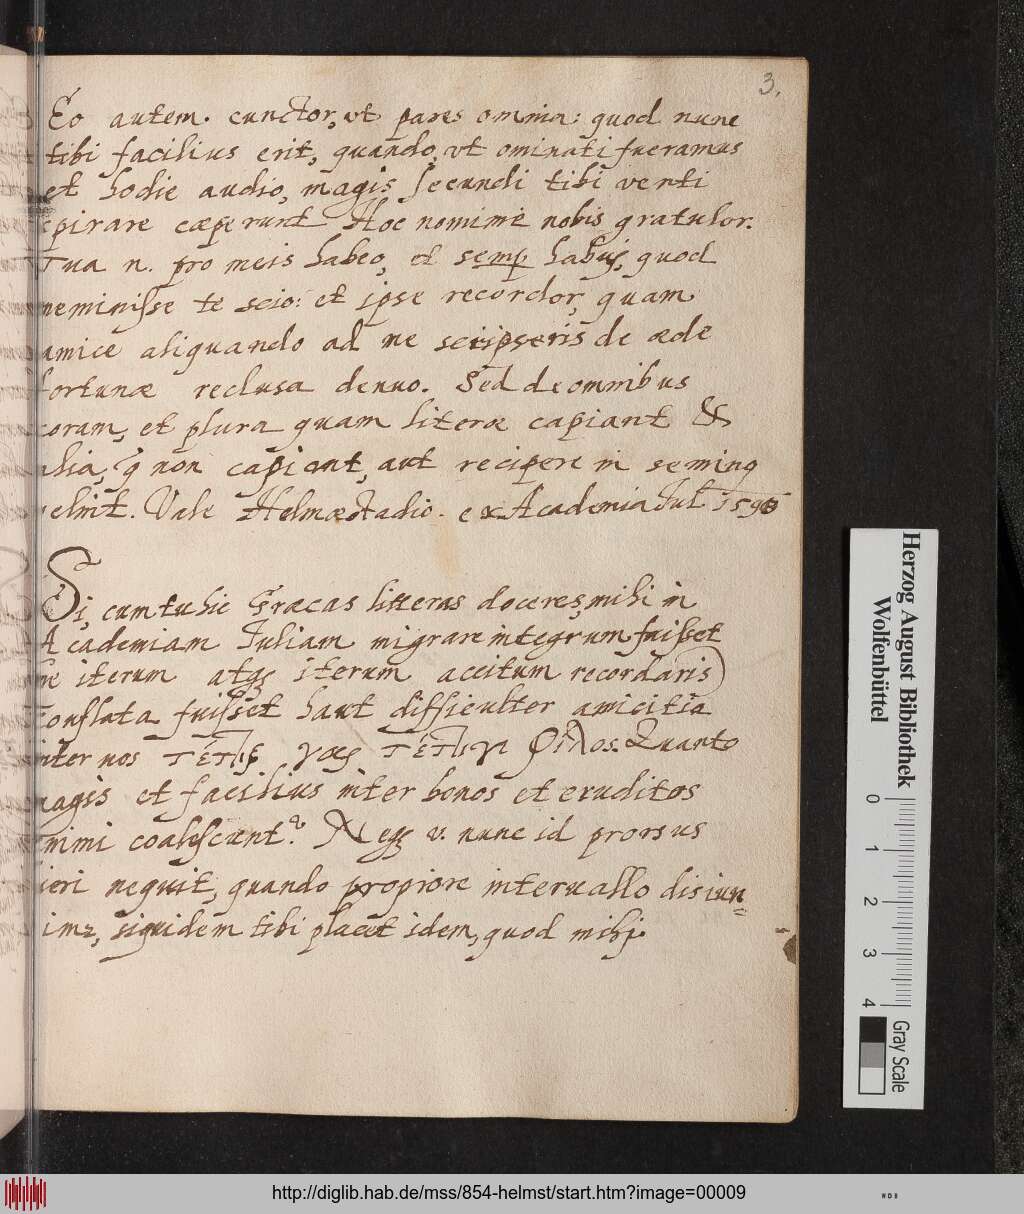 3.
Eo autem cunctor, ut pares omnia: quod nunc
tibi facilius erit, quando, ut ominati fueramus
et hodie audio, magis secundi tibi venti
spirare cæperunt Hoc nomine nobis gratulor.
Tua n. pro meis habeo, et semp habui, quod
meminisse te scio: et ipse recordor, quam
amice aliquando ad me scripseris de æde
fortunæ reclusa denuo. Sed de omnibus
coram, et plura quam literæ capiant &
alia, q non capiant, aut recipere in se
velint. Vale Helmæstadio. ex Academia Jul
Si, cum tu hic Græcas litteras doceres, mihi in
Academiam Juliam migrare integrum fuisset
(ne iterum atq iterum accitum recordaris)
conflata fuisset haut difficulter amicitia
inter nos τέτ γ τέτ φίλος. Quanto
magis et facilius inter bonos et eruditos
animi coalescunt? Neq v. nunc id prorsus
fieri nequit, quando propiore intervallo disiun=
imz, siquidem tibi placet idem, quod mihi.
Herzog August Bibliothek
Wolfenbüttel
0 1 2 3 4
Gray Scale
http://diglib.hab.de/mss/854-helmst/start.htm?image=00009